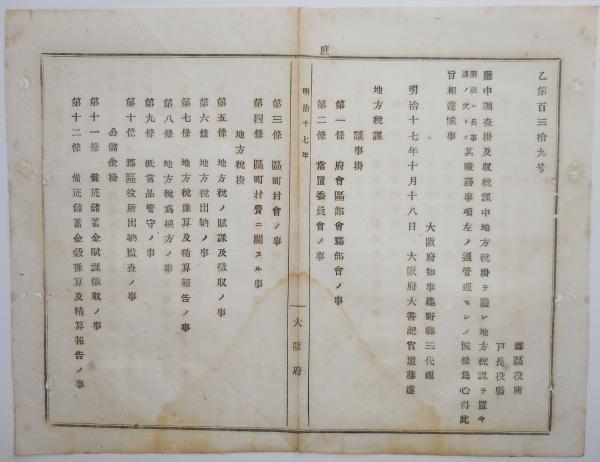 乙第百三拾九号
郡區役所
戸長役場
廳中調査掛及収税課中地方税掛ヲ廢シ地方税課ヲ置キ
課ノ次トス其職務事項左ノ通管理セシメ候條爲心得此
旨相達候事
大阪府知事建野郷三代理
明治十七年十月十八日 大阪府大書記官遠藤達
地方税課
議事掛
第一條 府會區部會郡部會ノ事
第二條 常置委員會ノ事
庶
明治十七年
大阪府
第三條 區町村會ノ事
第四條 區町村費ニ關スル事
地方税掛
第五條 地方税ノ賦課及徴収ノ事
第六條 地方税出納ノ事
第七條 地方税豫算及精算報告ノ事
第八條 地方税爲換方ノ事
第九條 抵當品管守ノ事
第十條 郡區役所出納監査ノ事
公儲金掛
第十一條 備荒儲蓄金賦課徴収ノ事
第十二條 備荒儲蓄金穀豫算及精算報告ノ事